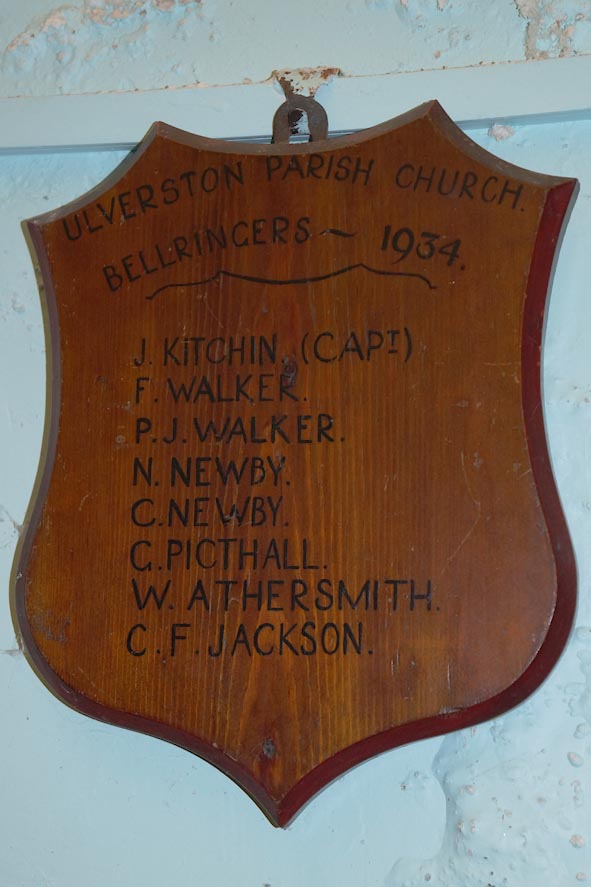 ULVERSTON PARISH CHURCH.
BELLRINGERS ~ 1934.
J. KITCHIN. (CAPT)
F. WALKER.
P. J. WALKER.
N. NEWBY.
C. NEWBY.
G. PICTHALL.
W. ATHERSMITH.
C. F. JACKSON.